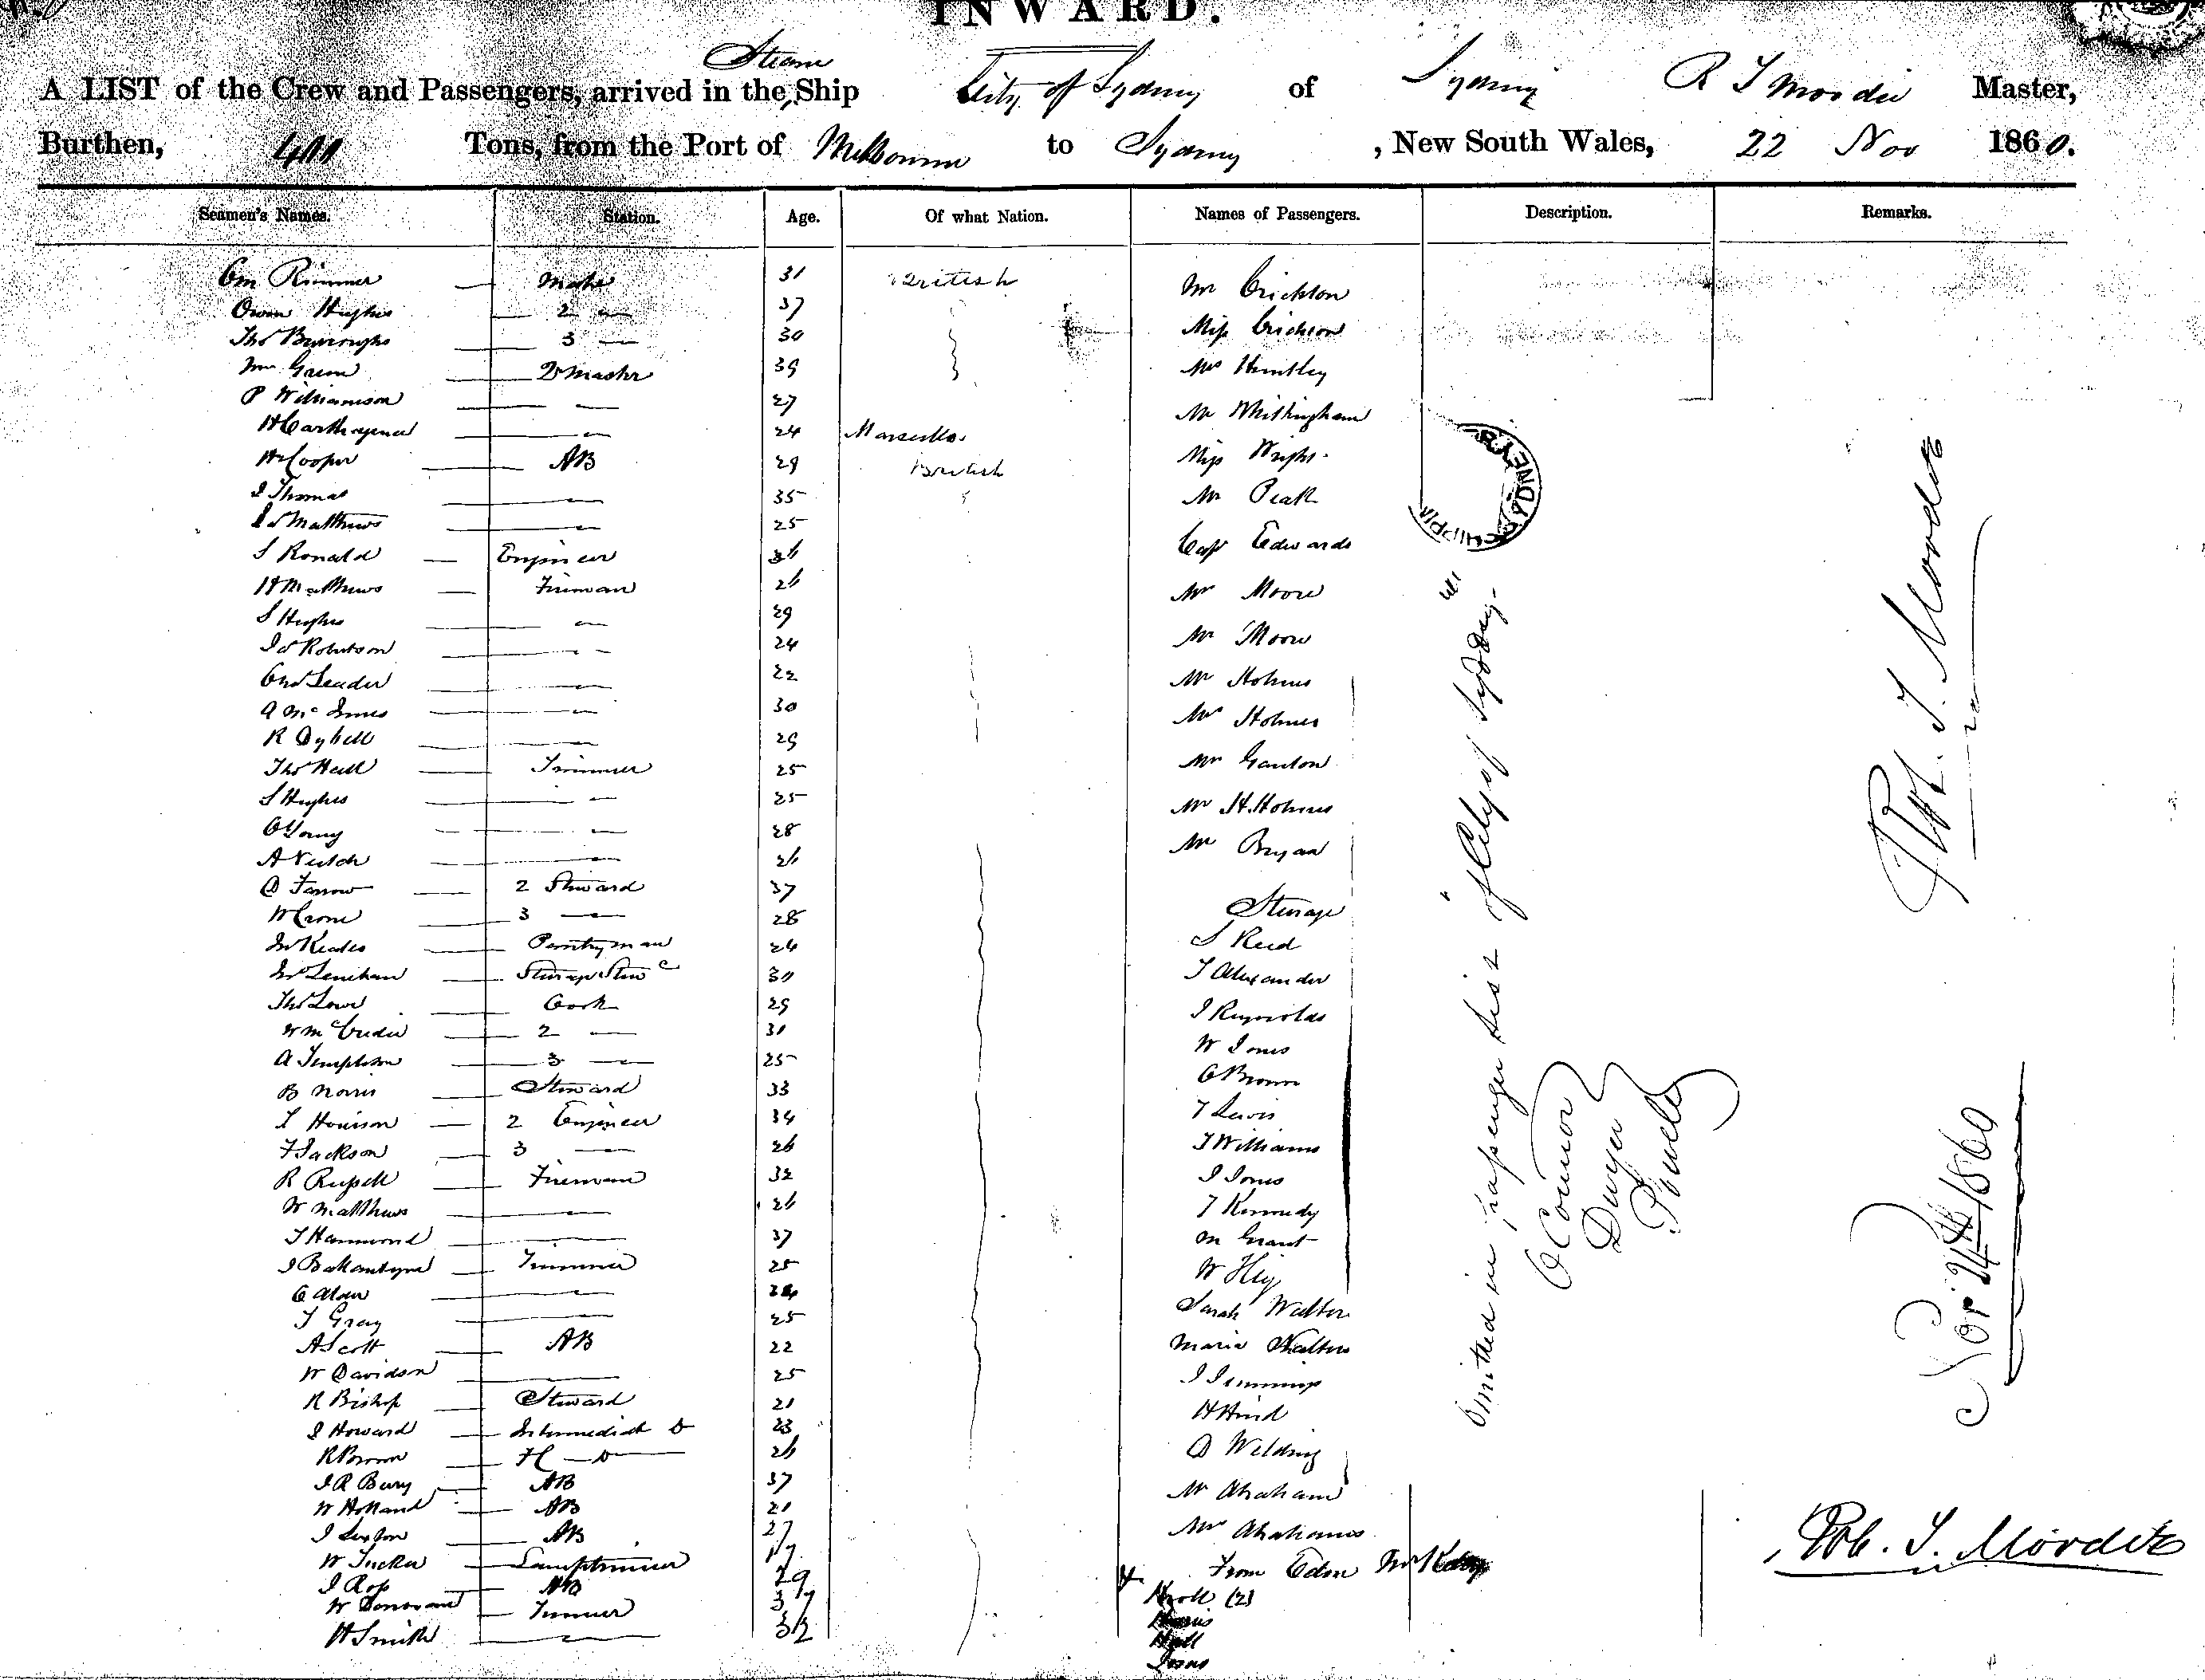 INWARD.
A LIST of the Crew and Passengers, arrived in the Steam Ship City of Sydney of Sydney R T Moodie Master,
Burthen, Tons, from the Port of Melbourne to Sydney , New South Wales, 22 Nov 1860.
Seamen's Names. Station. Age. Of what Nation. Names of Passengers. Description. Remarks.
Rimmer Mate 31 British Mr Crichton
Owen Hughes 2 " 37 Miss Crichton
Thos Burroughs 3 " 30 Mrs Huntley
Wm Green Qr Master 39
P Williamson " 27 Mr Whittingham
" 24 Marseilles
W Cooper AB 29 British Miss Wright
J Thomas " 35 Mr Peak
Jas Matthews " 25
S Ronald Engineer 36 Capt Edwards
H Matthews Fireman 26 Mr Moore
S Hughes " 29
Jas Robertson " 24 Mr Moore
Leader " 22 Mr Holmes
A McInnes " 30 Mrs Holmes
R Dybell " 29
Thos Hall Trimmer 25 Mr Ganton
S Hughes " 25 Mr H. Holmes
C Young " 28
A Veitch " 26 Mr Bryan
D Farrow 2 Steward 37
W Crone 3 " 28 Steerage
Jno Keales Pantryman 24 S Reid
Jno Lenihan Steerage Stewd 30 T Alexander
Thos Lowe Cook 29 J Reynolds
2 " 31 W Jones
A Templeton 3 " 25 C Brown
B Norris Steward 33
T Howison 2 Engineer 34 T Lewis
F Jackson 3 " 26 T Williams
R Russell Fireman 32 J Jones
W Matthews " 26 T Kennedy
T Hammond " 37 M Grant
J Ballantyne Trimmer 25 W
" Sarah Walters
T Gray " 25
A Scott AB 22 Maria Walters
W Davidson " 25 J Jennings
R Bishop Steward 21 H Hind
J Howard Intermediate Do 23
R Brown 26 D Welding
J R Bury AB 37
W Holland AB 21 Mr Abrahams
J Sexton AB 27 Mrs Abrahams
W Tucker Lamptrimmer 17 From Eden
J Ross AB 29
W Donovan Trimmer 37 Kroll (2)
H Smith " 32 Harris
Hall
Jones
Omitted in passenger list of City of Sydney
O'Connor
Dwyer
Powell
SYDNEY
Nov 24th 1860